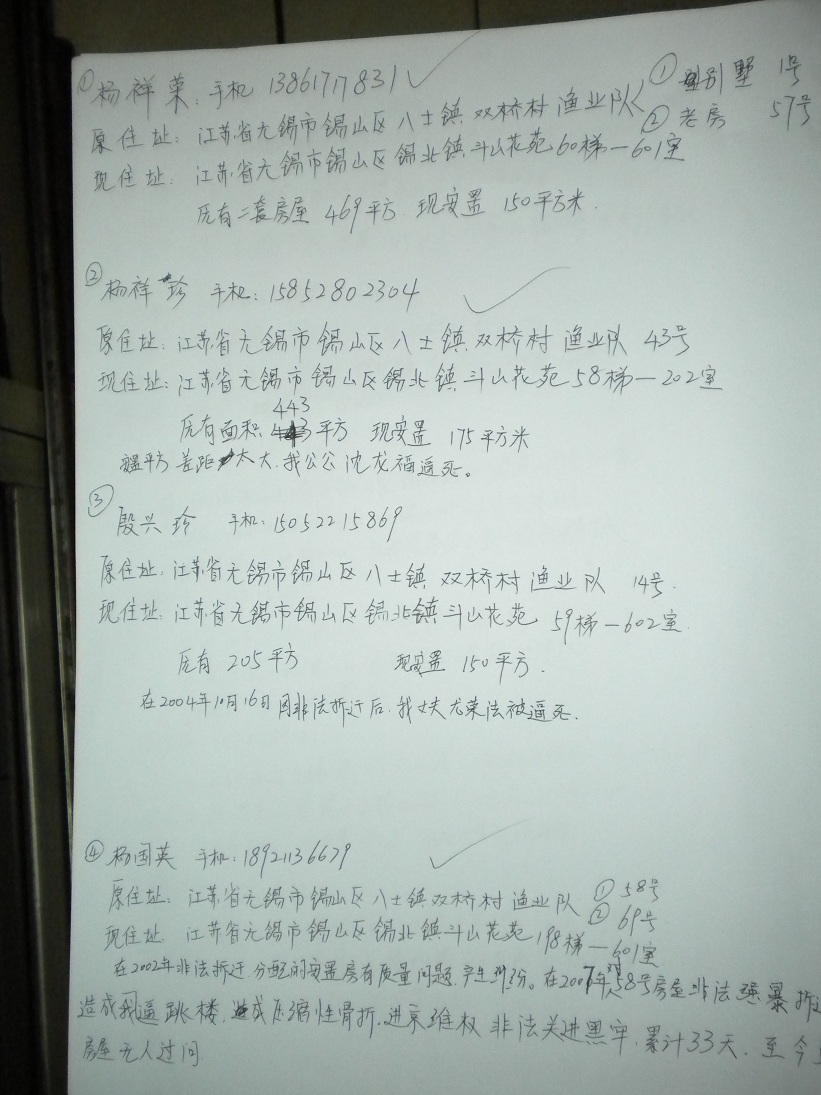 ① 杨祥荣：手机 13861717831 ✓
原住址：江苏省无锡市锡山区八士镇双桥村渔业队 < ① 别墅 1号
② 老房 57号
现住址：江苏省无锡市锡山区锡北镇斗山花苑60梯—601室
原有二套房屋 469平方 现安置 150平方米.
② 杨祥珍 手机：15852802304 ✓
原住址：江苏省无锡市锡山区八士镇双桥村渔业队 43号
现住址：江苏省无锡市锡山区锡北镇斗山花苑58梯—202室
443
原有面积 平方 现安置 175平方米
平方差距太大.我公公沈龙福逼死。
③ 殷兴珍 手机：15052215869
原住址：江苏省无锡市锡山区八士镇双桥村渔业队 14号.
现住址：江苏省无锡市锡山区锡北镇斗山花苑 59梯—602室.
原有 205平方 现安置 150平方.
在2004年10月16日因非法拆迁后.我丈夫尤荣法被逼死.
④ 杨国英 手机：18921136679 ✓
原住址：江苏省无锡市锡山区八士镇双桥村渔业队 ① 58号
② 69号
现住址：江苏省无锡市锡山区锡北镇斗山花苑198梯—601室
在2002年非法拆迁分配的安置房有质量问题.产生 。在2007年 58号房屋非法强暴拆
造成我逼跳楼.造成压缩性骨折.进京维权 非法关进黑牢.累计33天.至今
房屋无人过问